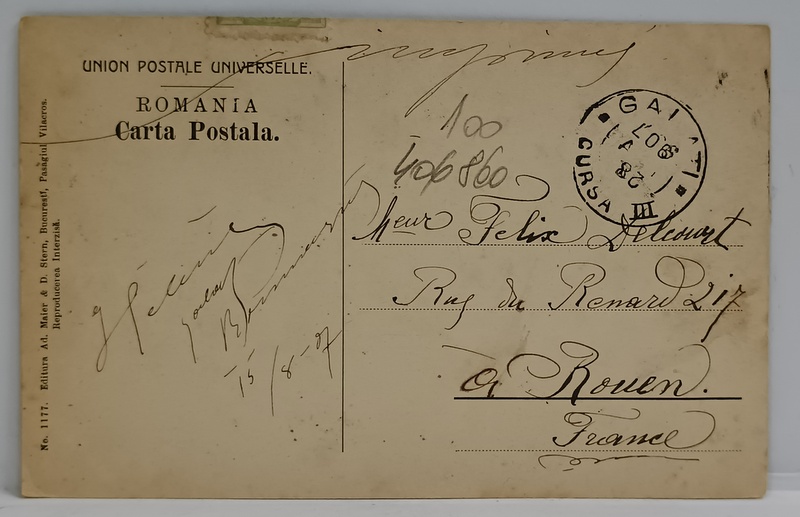 imprimés
UNION POSTALE UNIVERSELLE.
ROMANIA
Carta Postala.
No. 1177. Editura Ad. Maier & D. Stern, Bucuresti, Pasagiul Vilacros.
Reproducerea Interzisă.
100
406860
GALATI
28
907
CURSA III
Mr Felix Delcourt
Rue du Renard 217
à Rouen.
France
Galatz
Roumanie
15/8-07